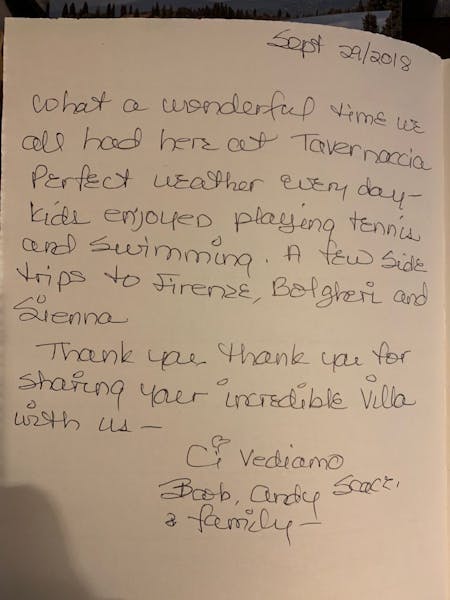 Sept 29/2018
What a wonderful time we
all had here at Tavernaccia
Perfect weather every day—
kids enjoyed playing tennis
and swimming. A few side
trips to Firenze, Bolgheri and
Sienna
Thank you thank you for
sharing your incredible Villa
with us —
Ci Vediamo
Andy
& family —